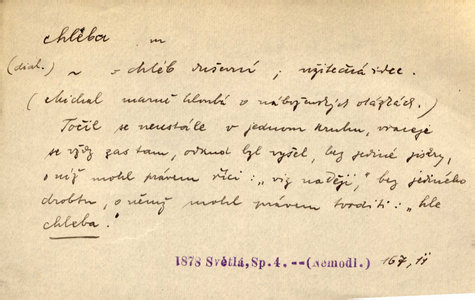 chléba m
(dial.) ~ = chléb duševní ; užitečná věc.
(Michal marně hloubá o náboženských otázkách.)
Točil se neustále v jednom kruhu, vraceje
se vždy zas tam, odkud byl vyšel, bez jediné jiskry,
o níž mohl právem říci: „viz naději," bez jediného
drobtu, o němž mohl právem tvrditi: „hle
chleba."
1878 Světlá, Sp. 4. --(Nemodl.) 167, 11